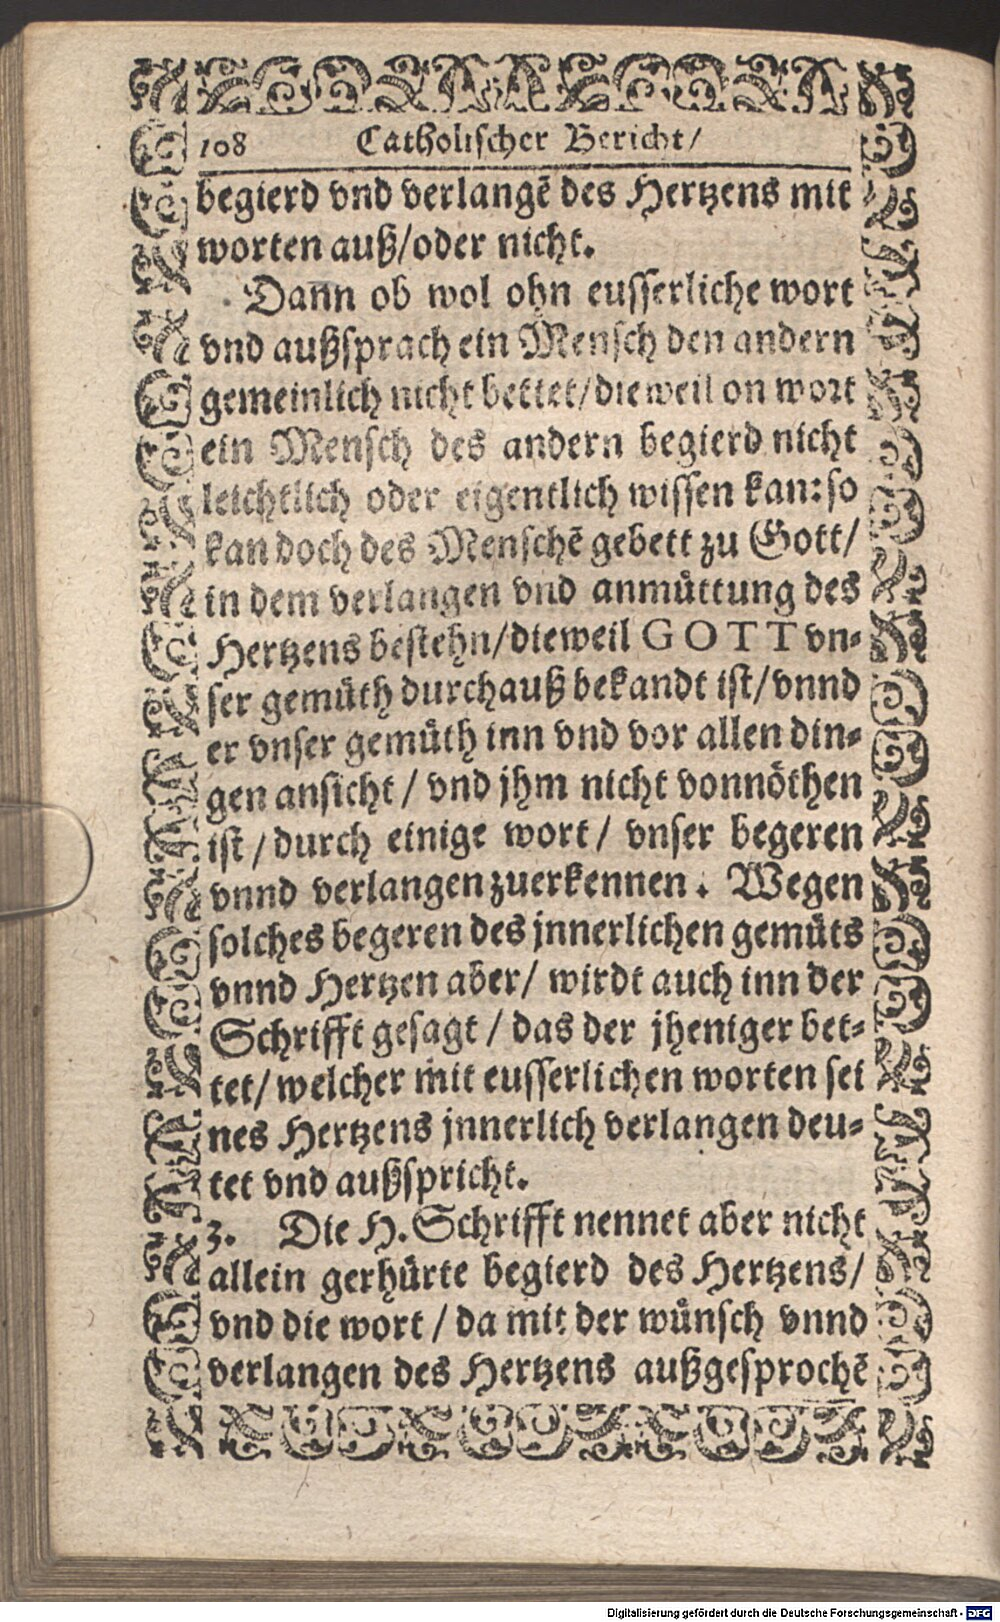 108 Catholischer Bericht/
begierd vnd verlangẽ des Hertzens mit
worten auß/oder nicht.
Dann ob wol ohn eusserliche wort
vnd außsprach ein Mensch den andern
gemeinlich nicht bettet/dieweil on wort
ein Mensch des andern begierd nicht
leichtlich oder eigentlich wissen kan:so
kan doch des Menschẽ gebett zu Gott/
in dem verlangen vnd anmüttung des
Hertzens bestehn/dieweil GOTT vn-
ser gemüth durchauß bekandt ist/vnnd
er vnser gemüth inn vnd vor allen din-
gen ansicht/ vnd jhm nicht vonnöthen
ist/durch einige wort/ vnser begeren
vnnd verlangen zuerkennen. Wegen
solches begeren des jnnerlichen gemüts
vnnd Hertzen aber/ wirdt auch inn der
Schrifft gesagt/ das der jheniger bet-
tet/welcher mit eusserlichen worten sei
nes Hertzens jnnerlich verlangen deu-
tet vnd außspricht.
3. Die H. Schrifft nennet aber nicht
allein gerhürte begierd des Hertzens/
vnd die wort/ da mit der wünsch vnnd
verlangen des Hertzens außgesprochẽ
Digitalisierung gefördert durch die Deutsche Forschungsgemeinschaft - DFG